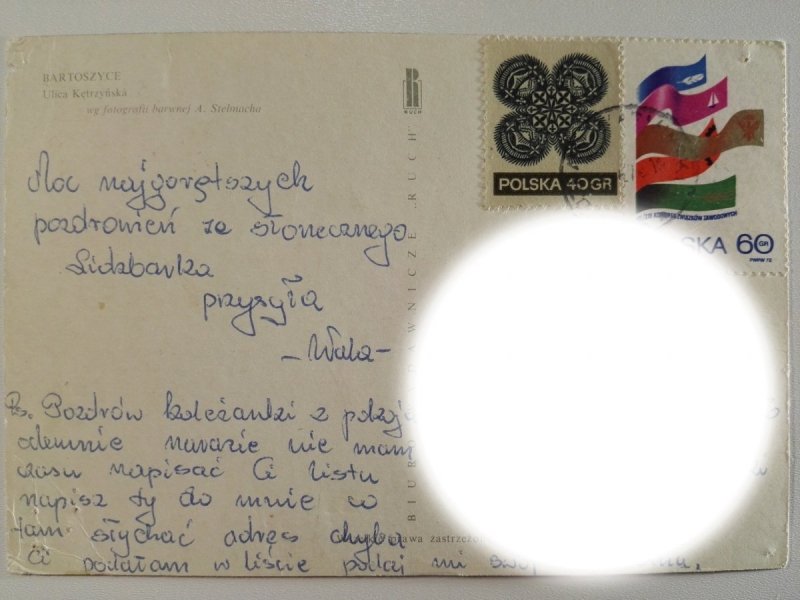 BARTOSZYCE
Ulica Kętrzyńska
wg fotografii barwnej A. Stelmacha
RUCH
POLSKA 40 GR
ZWIĄZKÓW ZAWODOWYCH
SKA 60 GR
PWPW 72
Moc najgorętszych
pozdrowień ze słonecznego
Lidzbarka
przysyła
-Wala-
Ps. Pozdrów koleżanki z pokoj
odemnie narazie nie mam
czasu napisać Ci listu
napisz ty do mnie co
tam słychać adręs chyba
Ci podałam w liście podaj mi
DAWNICZE „RUCH”
BIUR
prawa zastrzeżo